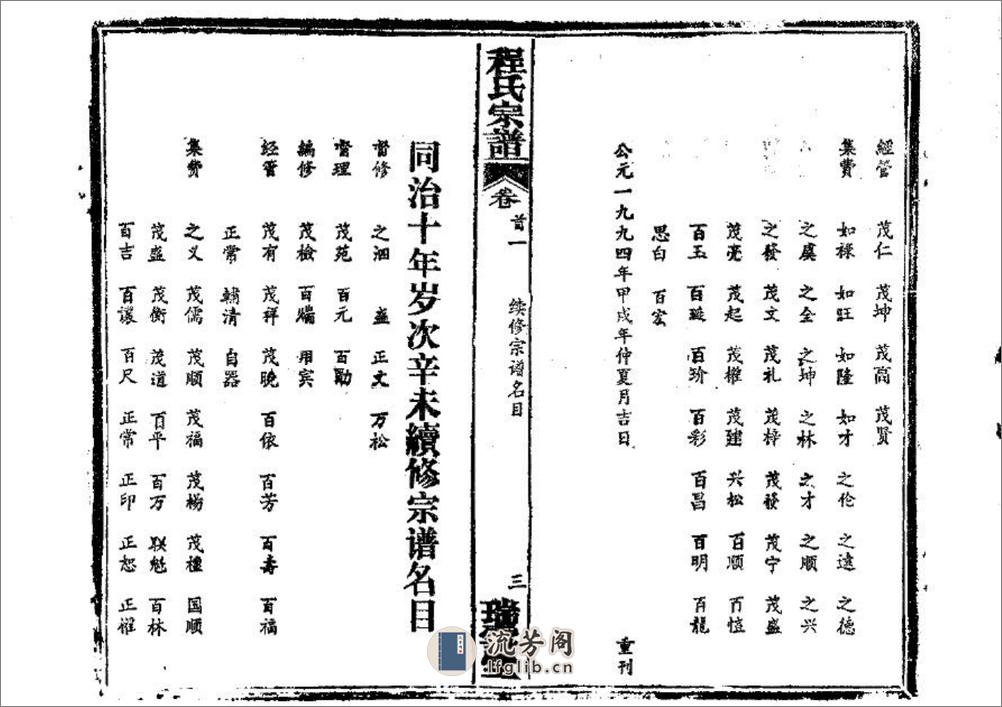 經管 茂仁 茂坤 茂高 茂賢
集费 如祿 如旺 如隆 如才 之伦 之遠 之德
之虞 之全 之坤 之林 之才 之顺 之兴
之發 茂文 茂礼 茂梓 茂發 茂宁 茂盛
茂亮 茂起 茂權 茂建 兴松 百顺 百恺
百玉 百琎 百玠 百彩 百昌 百明 百龍
思白 百宏
公元一九九四年甲戌年仲夏月吉日 重刊
程氏宗譜 卷首一 续修宗谱名目 三
同治十年岁次辛未續修宗谱名目
督修 之泗 益 正文 万松
督理 茂苑 百元 百勋
编修 茂檢 百端 用宾
经管 茂有 茂祥 茂晚 百依 百芳 百壽 百福
正常 輔清 自器
集费 之义 茂儒 茂顺 茂福 茂楊 茂檀 国顺
茂盛 茂衡 茂道 百平 百万 联魁 百林
百吉 百讓 百尺 正常 正印 正恕 正惟
流芳阁
lfglib.cn